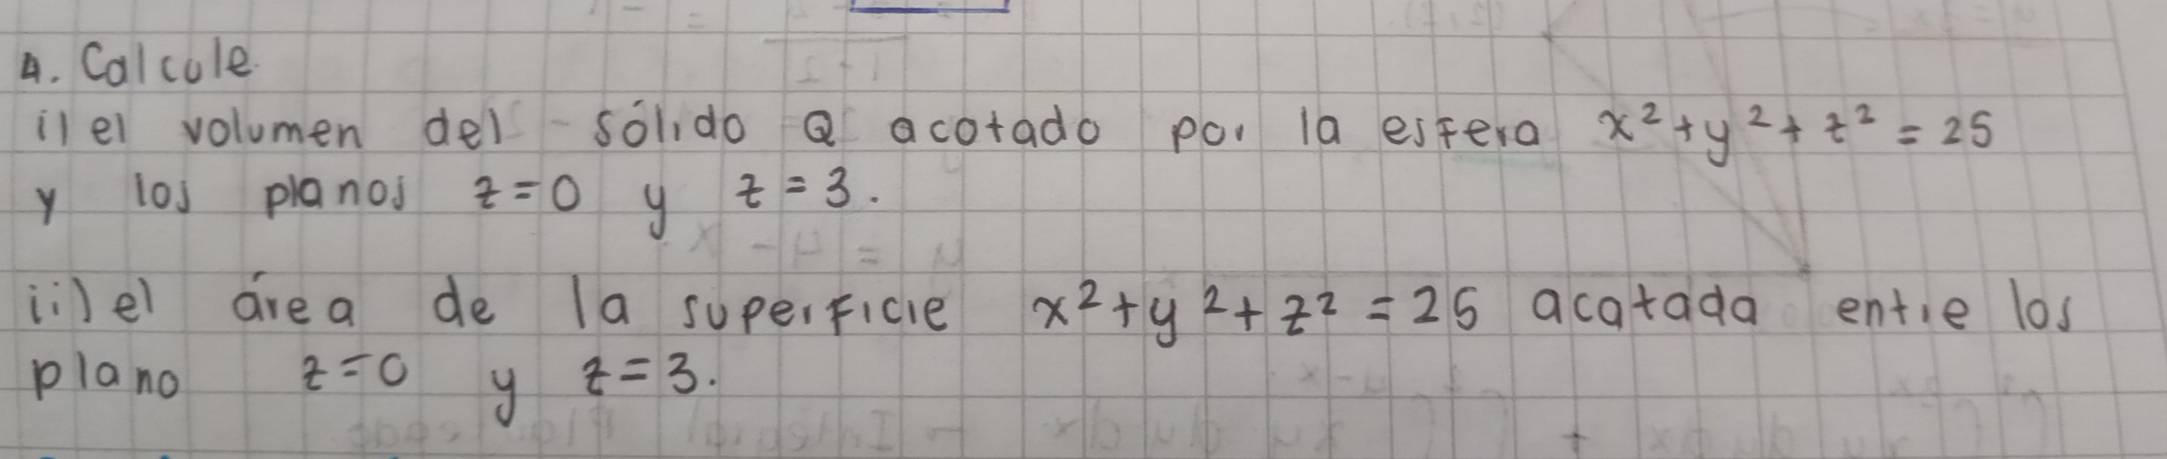 4. Calcule.
i) el volumen del sólido Q acotado por la esfera x² + y² + z² = 25
y los planos z = 0 y z = 3.
ii) el área de la superficie x² + y² + z² = 25 acotada entre los
plano z = 0 y z = 3.